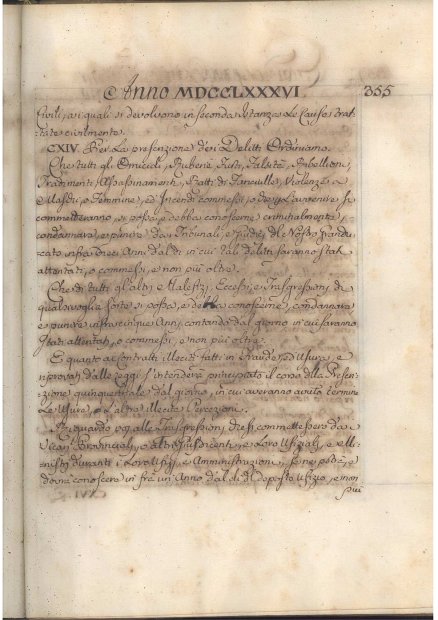 Anno MDCCLXXXVI 355
Civili, ai quali si devolvono in seconda Istanza Le Cause trat
tate civilmente.
CXIV. Per La prescrizione dei Delitti Ordiniamo.
Che tutti gli Omicidi, Ruberie, Furti, Falsità, Ribellioni,
Tradimenti, Assassinamenti, Ratti di Fanciulle, Violenze a
Maschi, o Femmine, e Incendi commessi, o che per L'avvenire si
commetteranno, si possa, e debba conoscerne criminalmente,
condannare, e punire dai Tribunali, e Giudici del Nostro Grandu
cato infra dieci Anni dal dì in cui tali delitti saranno stati
attentati, o commessi, e non più oltre.
Che di tutti gl'altri Malefizi, Eccessi, e Trasgressioni di
qualsivoglia sorte si possa, e debba conoscerne, condannare
e punire infra cinque Anni contando dal giorno in cui saranno
stati attentati, o commessi, e non più oltre.
E quanto ai Contratti illeciti fatti in Fraude, ed Usura, e
riprovati dalle Leggi s'intenderà principiato il corso della Prescri
zione quinquennale dal giorno, in cui averanno avuto termine
Le Usure, o L'altre illecite Percezioni.
In riguardo poi alle Trasgressioni, che si commettessero da
Vicari Provinciali, o altri Giusdicenti, e Loro Ufiziali, e Mi
nistri duranti i Loro Ufizi, e Amministrazioni, se ne potrà, e
dovrà conoscere in fra un Anno dal dì del deposto Ufizio, e non
più